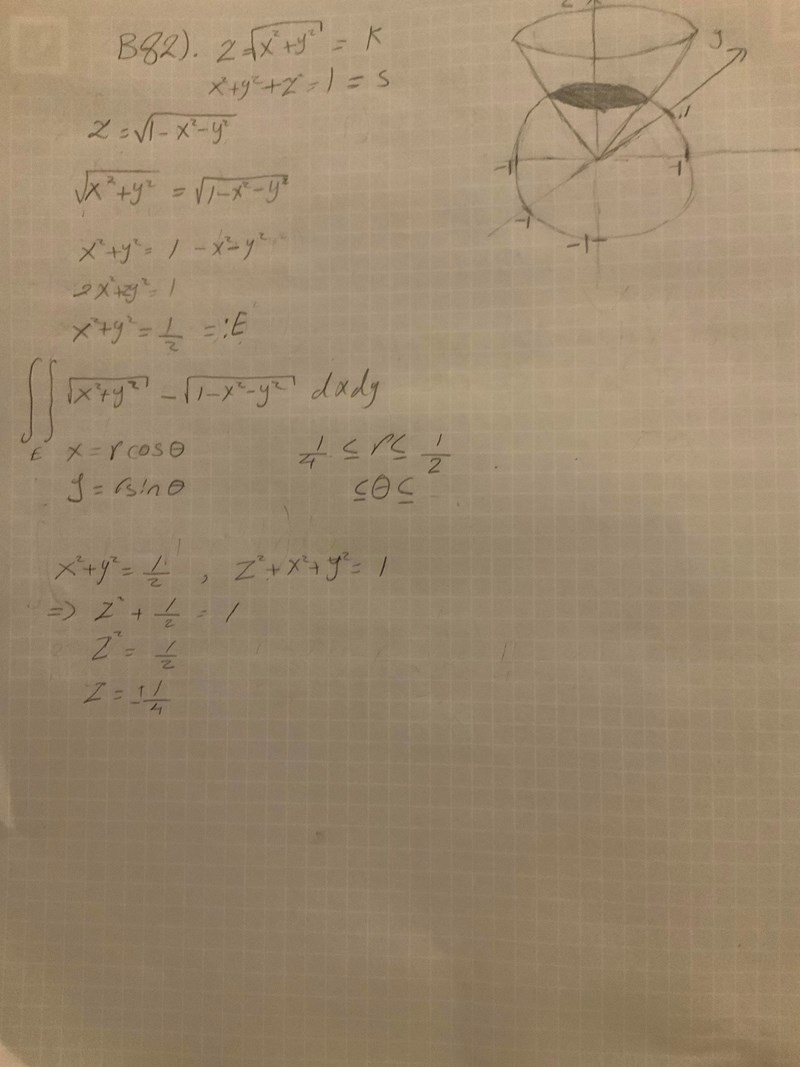 B82). z = √(x²+y²) = K
x²+y²+z²-1 = S
z = √(1-x²-y²)
√(x²+y²) = √(1-x²-y²)
x²+y² = 1 - x²-y²
2x²+2y² = 1
x²+y² = 1/2 =: E
∬_E √(x²+y²) - √(1-x²-y²) dxdy
x = r cos θ 1/4 ≤ r ≤ 1/2
y = r sin θ ≤ θ ≤
x²+y² = 1/2 , z²+x²+y² = 1
=> z² + 1/2 = 1
z² = 1/2
z = ± 1/4
z
y
1
-1
-1
-1
-1